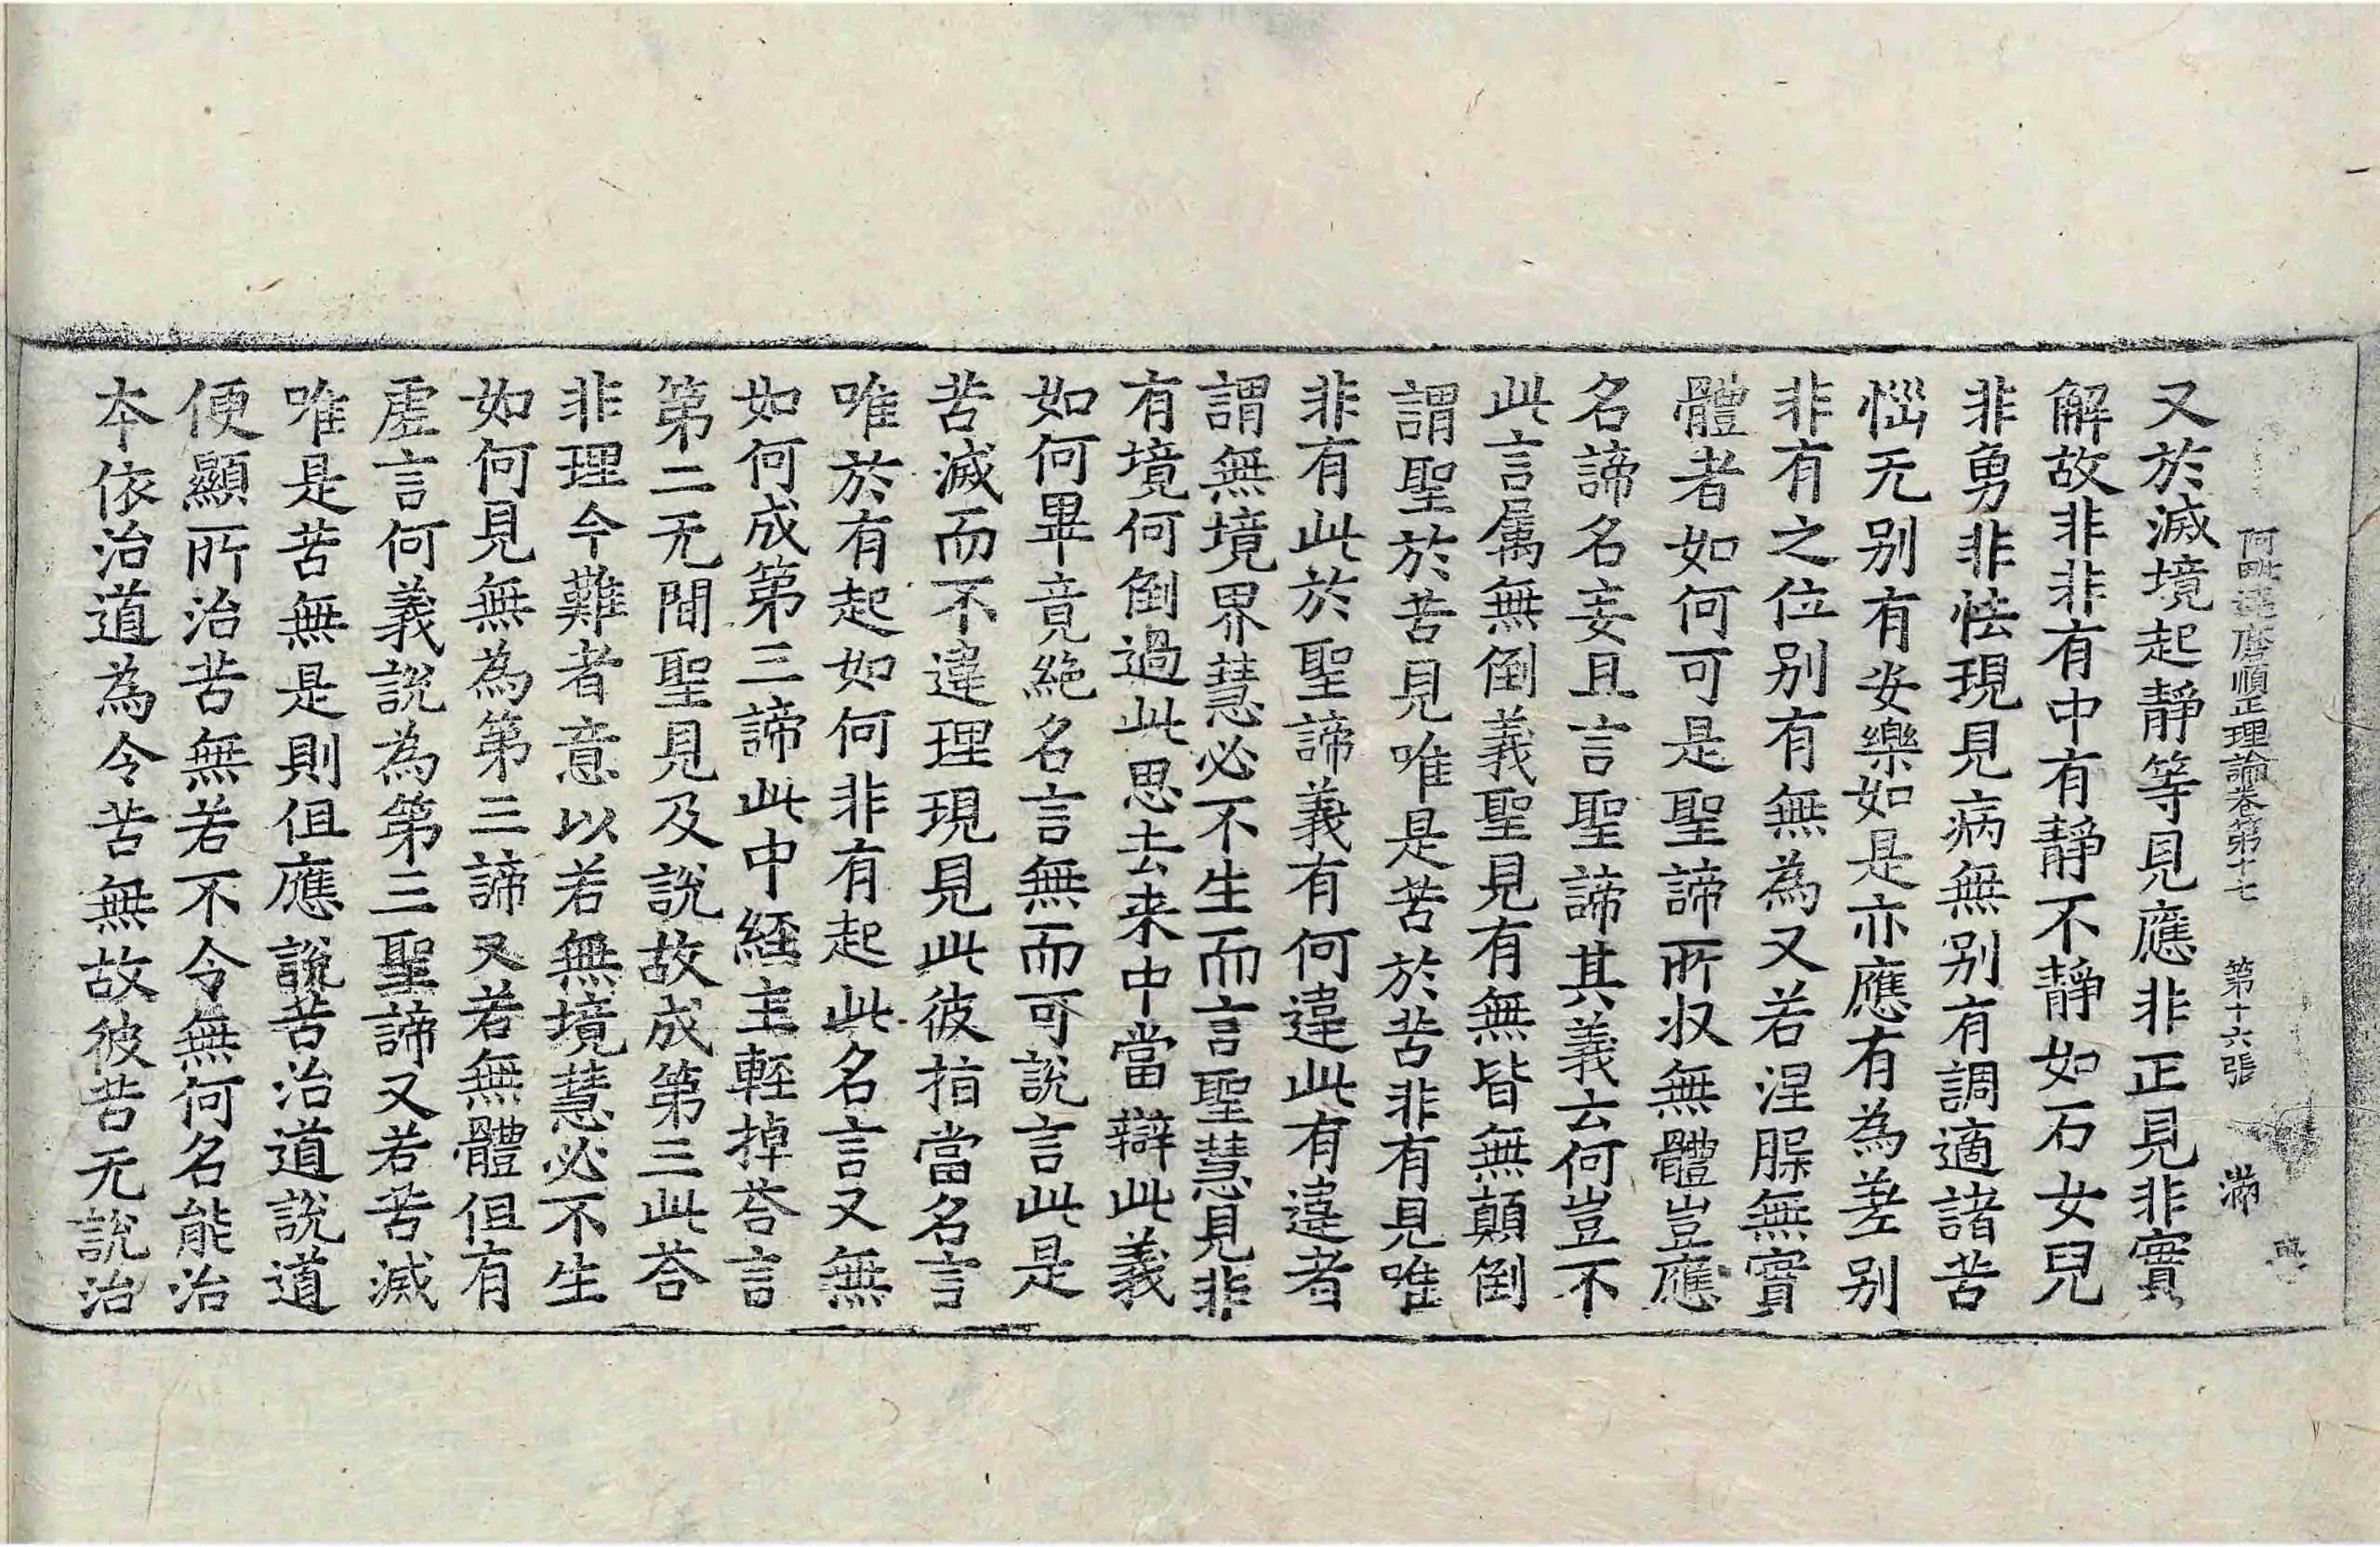 阿毗達磨順正理論卷第十七 第十六張 滿
又於滅境起靜等見應非正見非實
解故非非有中有靜不靜如石女兒
非勇非怯現見病無別有調適諸苦
惱无別有安樂如是亦應有為差別
非有之位別有無為又若涅脲無實
體者如何可是聖諦所収無體豈應
名諦名妄且言聖諦其義云何豈不
此言属無倒義聖見有無皆無顛倒
謂聖於苦見唯是苦於苦非有見唯
非有此於聖諦義有何違此有違者
謂無境界慧必不生而言聖慧見非
有境何倒過此思去来中當辯此義
如何畢竟絶名言無而可說言此是
苦滅而不違理現見此彼指當名言
唯於有起如何非有起此名言又無
如何成第三諦此中經主輕掉荅言
第二无間聖見及說故成第三此荅
非理今難者意以若無境慧必不生
如何見無為第三諦又若無體但有
虛言何義說為第三聖諦又若苦滅
唯是苦無是則但應說苦治道說道
便顯所治苦無若不令無何名能治
夲依治道為令苦無故彼苦无說治